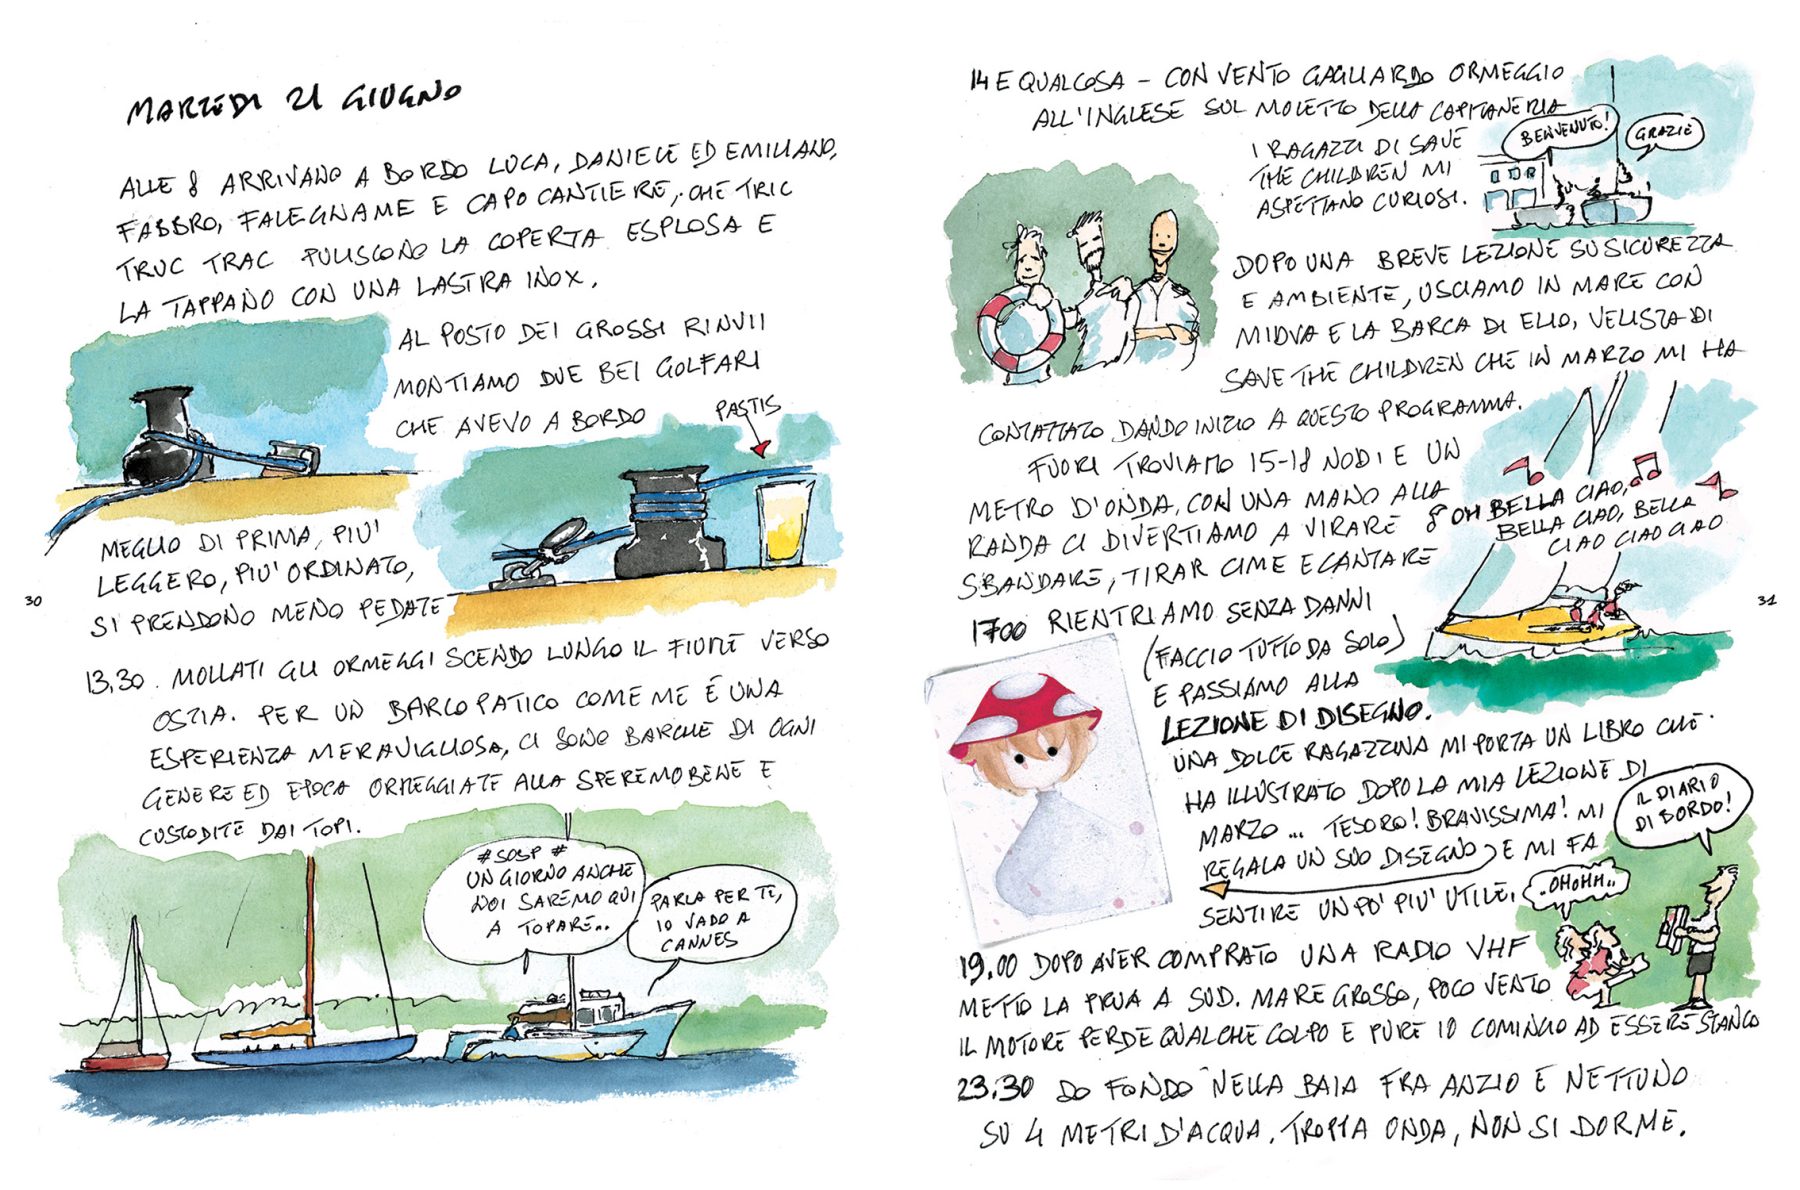 MARTEDI 21 GIUGNO
ALLE 8 ARRIVANO A BORDO LUCA, DANIELE ED EMILIANO,
FABBRO, FALEGNAME E CAPO CANTIERE, CHE TRIC
TRUC TRAC PULISCONO LA COPERTA ESPLOSA E
LA TAPPANO CON UNA LASTRA INOX.
AL POSTO DEI GROSSI RINVII
MONTIAMO DUE BEI GOLFARI
CHE AVEVO A BORDO
PASTIS
MEGLIO DI PRIMA, PIU'
LEGGERO, PIU' ORDINATO,
SI PRENDONO MENO PEDATE
30
13,30. MOLLATI GLI ORMEGGI SCENDO LUNGO IL FIUME VERSO
OSTIA. PER UN BARCOPATICO COME ME É UNA
ESPERIENZA MERAVIGLIOSA, CI SONO BARCHE DI OGNI
GENERE ED EPOCA ORMEGGIATE ALLA SPEREMOBENE E
CUSTODITE DAI TOPI.
#SOSP#
UN GIORNO ANCHE
NOI SAREMO QUI
A TOPARE..
PARLA PER TE,
IO VADO A
CANNES
14 E QUALCOSA - CON VENTO GAGLIARDO ORMEGGIO
ALL'INGLESE SUL MOLETTO DELLA CAPITANERIA
I RAGAZZI DI SAVE
THE CHILDREN MI
ASPETTANO CURIOSI.
BENVENUTO!
GRAZIE
DOPO UNA BREVE LEZIONE SU SICUREZZA
E AMBIENTE, USCIAMO IN MARE CON
MIDVA E LA BARCA DI ELIO, VELISTA DI
SAVE THE CHILDREN CHE IN MARZO MI HA
CONTATTATO DANDO INIZIO A QUESTO PROGRAMMA.
FUORI TROVIAMO 15-18 NODI E UN
METRO D'ONDA, CON UNA MANO ALLA
RANDA CI DIVERTIAMO A VIRARE
SBANDARE, TIRAR CIME E CANTARE
OH BELLA CIAO,
BELLA CIAO, BELLA
CIAO CIAO CIAO
1700 RIENTRIAMO SENZA DANNI
(FACCIO TUTTO DA SOLO)
E PASSIAMO ALLA
LEZIONE DI DISEGNO.
UNA DOLCE RAGAZZINA MI PORTA UN LIBRO CHE
HA ILLUSTRATO DOPO LA MIA LEZIONE DI
MARZO... TESORO! BRAVISSIMA! MI
REGALA UN SUO DISEGNO E MI FA
SENTIRE UN PO' PIU' UTILE.
IL DIARIO
DI BORDO!
..OHOHH..
31
19.00 DOPO AVER COMPRATO UNA RADIO VHF
METTO LA PRUA A SUD. MARE GROSSO, POCO VENTO
IL MOTORE PERDE QUALCHE COLPO E PURE IO COMINCIO AD ESSERE STANCO
23.30 DO FONDO NELLA BAIA FRA ANZIO E NETTUNO
SU 4 METRI D'ACQUA. TROPPA ONDA, NON SI DORME.